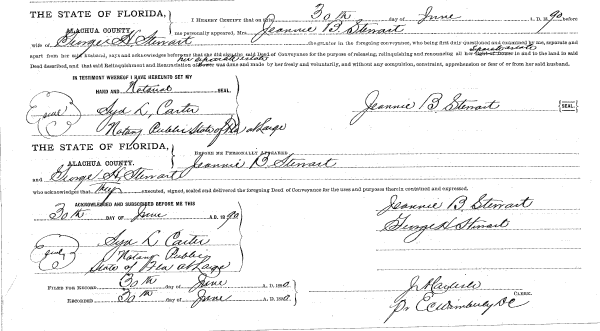 THE STATE OF FLORIDA,
ALACHUA COUNTY.
I HEREBY CERTIFY that on this 30th day of June A. D. 1890 before
me personally appeared, Mrs. Jeannie B Stewart
wife of George H. Stewart the grantor in the foregoing conveyance, who being first duly questioned and examined by me, separate and
apart from her said husband, says and acknowledges before me that she did sign the said Deed of Conveyance for the purpose of relinquishing and renouncing all her separate estate right of Dower in and to the land in said
Deed described, and that said Relinquishment and Renunciation of her separate estate Dower was done and made by her freely and voluntarily, and without any compulsion, constraint, apprehension or fear of or from her said husband.
IN TESTIMONY WHEREOF I HAVE HEREUNTO SET MY
HAND AND Notarial SEAL.
seal
Syd L. Carter
Notary Public State of Fla at Large
Jeannie B Stewart [SEAL]
THE STATE OF FLORIDA,
ALACHUA COUNTY.
BEFORE ME PERSONALLY APPEARED
Jeannie B Stewart
and George H. Stewart
who acknowledges that they executed, signed, sealed and delivered the foregoing Deed of Conveyance for the uses and purposes therein contained and expressed,
ACKNOWLEDGED AND SUBSCRIBED BEFORE ME THIS
30th DAY OF June A.D. 1890
Jeannie B. Stewart
George H Stewart
Syd L Carter
Notary Public
State of Fla at Large
FILED FOR RECORD 30th day of June A. D. 1890
RECORDED 30th day of June A. D. 1890
CLERK.
Pr E C Wimberly DC